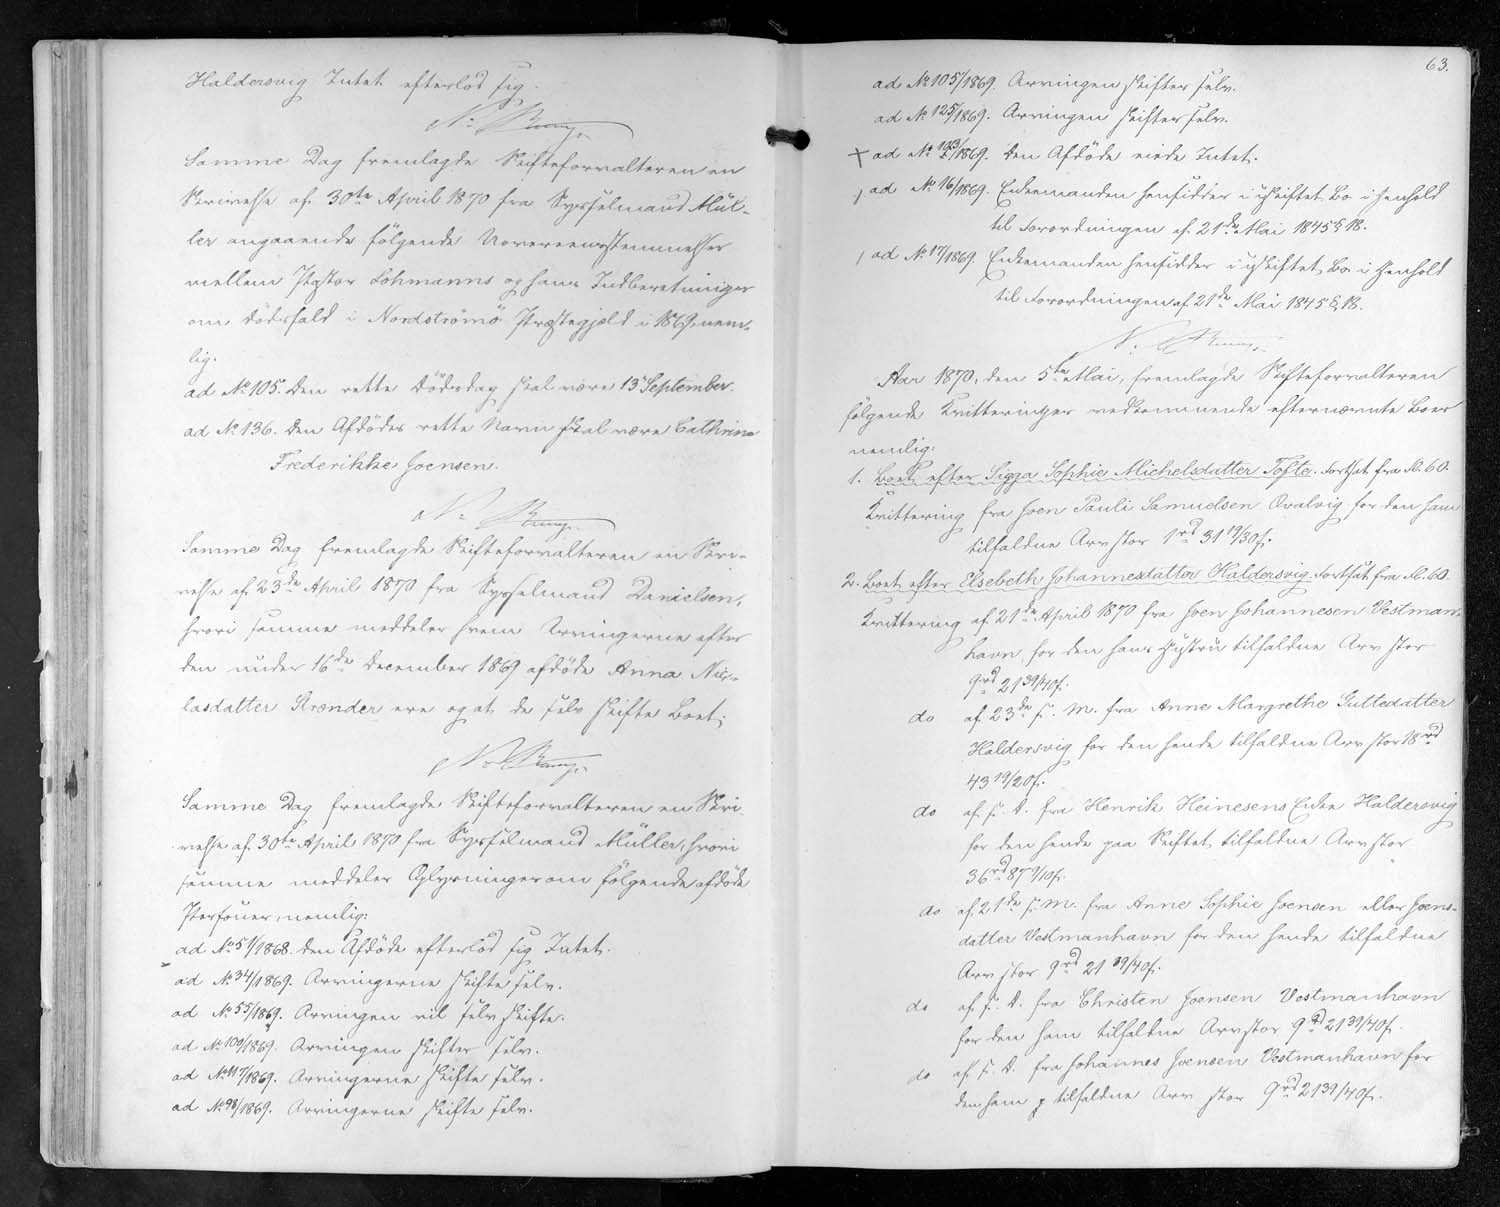 Haldersvig Intet efterlod sig.
Samme Dag fremlagde Skifteforvalteren en
Skrivelse af 30te April 1870 fra Sysselmand Mül-
ler angaaende følgende Uovereensstemmelser
mellem Pastor Lohmanns og hans Indberetninger
om Dødsfald i Nordstrømø Præstegjæld i 1869, nem-
lig:
ad No 105. Den rette Dødsdag skal være 13 September.
ad No 136. Den Afdødes rette Navn skal være Cathrine
Frederikke Joensen.
Samme Dag fremlagde Skifteforvalteren en Skri-
velse af 23de April 1870 fra Sysselmand Danielsen,
hvori samme meddeler hvem Arvingerne efter
den under 16de December 1869 afdøde Anna Nic-
lasdatter Strænder ere og at de selv skifte Boet.
Samme Dag fremlagde Skifteforvalteren en Skri-
velse af 30te April 1870 fra Sysselmand Müller, hvori
samme meddeler Oplysninger om følgende afdøde
Personer, nemlig:
ad No 51/1868. Den Afdøde efterlod sig Intet.
ad No 34/1869. Arvingerne skifte selv.
ad No 55/1869. Arvingen vil selv skifte.
ad No 100/1869. Arvingen skifter selv.
ad No 117/1869. Arvingerne skifte selv.
ad No 98/1869. Arvingerne skifte selv.
63.
ad No 105/1869. Arvingen skifter selv.
ad No 125/1869. Arvingen skifter selv.
ad No /1869. Den Afdøde eiede Intet.
ad No 16/1869. Enkemanden hensidder i uskiftet Bo i Henhold
til Forordningen af 21de Mai 1845 § 18.
ad No 17/1869. Enkemanden hensidder i uskiftet Bo i Henhold
til Forordningen af 21de Mai 1845 § 18.
Aar 1870, den 5te Mai, fremlagde Skifteforvalteren
følgende Kvitteringer vedkommende efternævnte Boer
nemlig:
1. Boet efter Sigga Sophie Michelsdatter Tofte. Fortsat fra Fol. 60.
Kvittering fra Joen Pauli Samuelsen Qvalvig for den ham
tilfaldne Arv stor 1rd 31 19/30 s.
2. Boet efter Elsebeth Johannesdatter Haldersvig. Fortsat fra Fol. 60.
Kvittering af 21de April 1870 fra Joen Johannesen Vestman-
havn, for den hans Hustru tilfaldne Arv stor
9rd 21 39/40 s.
do af 23de s. M. fra Anne Margrethe Guttesdatter
Haldersvig for den hende tilfaldne Arv stor 18rd
43 19/20 s.
do af s. D. fra Henrik Heinesens Enke Haldersvig
for den hende paa Skiftet tilfaldne Arv stor
36rd 87 9/10 s.
do af 21de s. M. fra Anne Sophie Joensen eller Joens-
datter Vestmanhavn for den hende tilfaldne
Arv stor 9rd 21 39/40 s.
do af s. D. fra Christen Joensen Vestmanhavn
for den ham tilfaldne Arv stor 9rd 21 39/40 s.
do af s. D. fra Johannes Joensen Vestmanhavn for
den ham tilfaldne Arv stor 9rd 21 39/40 s.